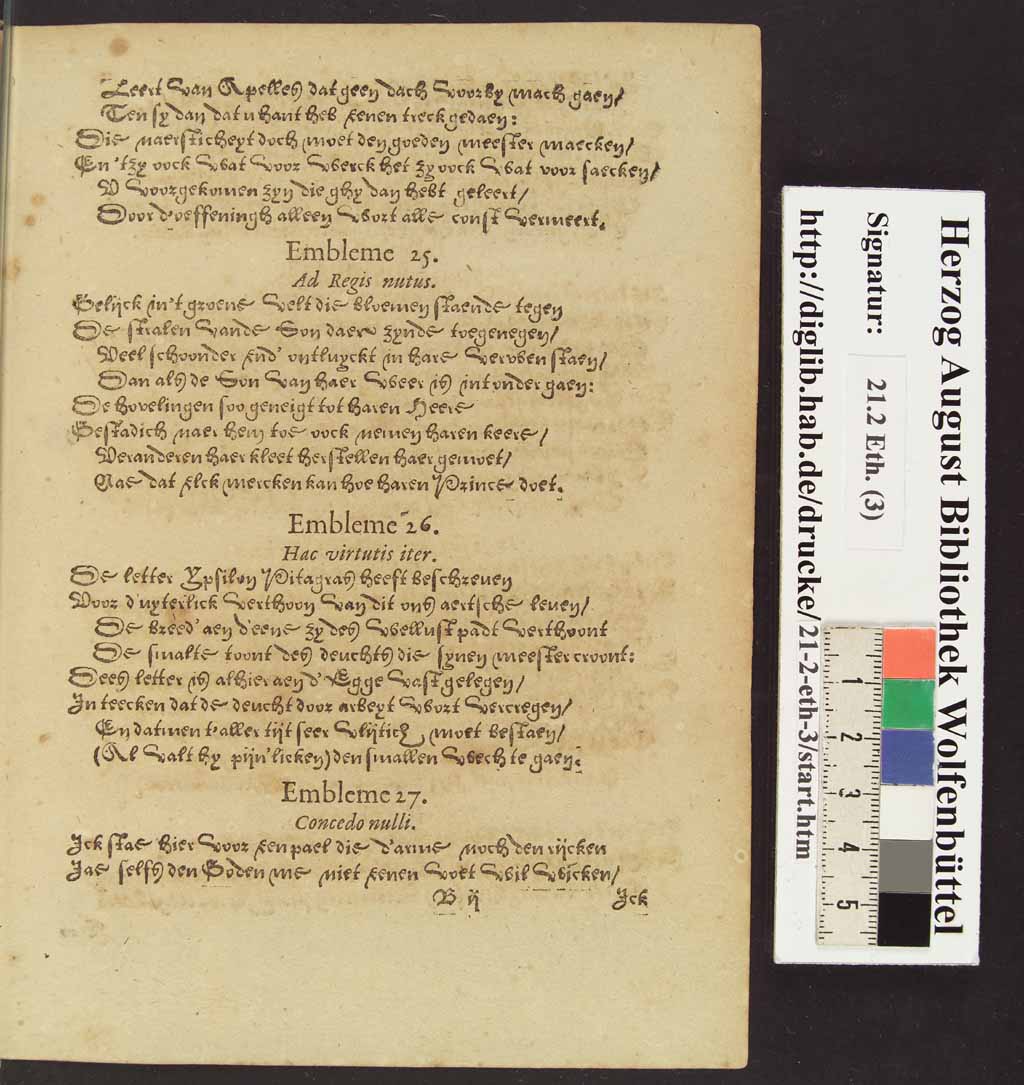 Leert van Apelles dat geen dach voorby mach gaen/
Ten sy dan dat u hant heb eenen treck gedaen:
Die naersticheyt doch moet den goeden meester maecken/
En 'tzy oock wat voor werck het zy oock wat voor saecken/
V voorgekomen zyn die ghy dan hebt geleert/
Door d'oeffeningh alleen wort alle const vermeert.
Embleme 25.
Ad Regis nutus.
Gelijck in't groene velt die bloemen staende tegen
De stralen vande Son daer zynde toegenegen/
Veel schoonder end' ontluyckt in hare verwen staen/
Dan als de Son van haer weer is int onder gaen:
De hovelingen soo geneigt tot haren Heere
Gestadich naer hem toe oock nemen haren keere/
Veranderen haer kleet herstellen haer gemoet/
Nae dat elck mercken kan hoe haren Prince doet.
Embleme 26.
Hac virtutis iter.
De letter Ypsilon Pitagras heeft beschreven
Voor d'uyterlick verthoon van dit ons aertsche leven/
De breed' aen d'eene zy des wellust padt verthoont
De smalte toont des deuchts die synen meester croont:
Dees letter is alhier aen d'Egge vast gelegen/
In teecken dat de deucht door arbeyt wort vercregen/
En datmen t'aller tijt seer vlijtich moet bestaen/
(Al valt hy pijn'licken) den smallen wech te gaen.
Embleme 27.
Concedo nulli.
Ick stae hier voor een pael die d'arme noch den rijcken
Jae selfs den Goden me niet eenen voet wil wijcken/
B ij
Ick
Herzog August Bibliothek Wolfenbüttel
Signatur: 21.2 Eth. (3)
http://diglib.hab.de/drucke/21-2-eth-3/start.htm
1
2
3
4
5